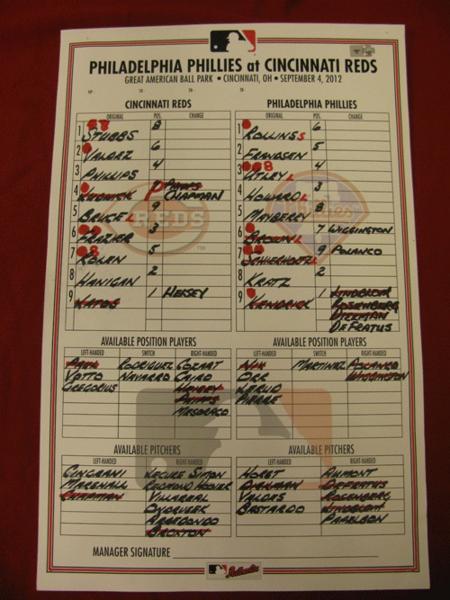 PHILADELPHIA PHILLIES at CINCINNATI REDS
GREAT AMERICAN BALL PARK • CINCINNATI, OH • SEPTEMBER 4, 2012
CINCINNATI REDS
ORIGINAL POS. CHANGE
1 STUBBS 8
2 VALDEZ 6
3 PHILLIPS 4
4 LUDWICK CHAPMAN
5 BRUCE L 9
6 FRAZIER 3
7 ROLEN 5
8 HANIGAN 2
9 LATOS 1 HEISEY
PHILADELPHIA PHILLIES
ORIGINAL POS. CHANGE
1 ROLLINS S 6
2 FRANDSEN 5
3 UTLEY L 4
4 HOWARD L 3
5 MAYBERRY 8
6 BROWN L 7 WIGGINTON
7 SCHIERHOLTZ L 9 POLANCO
8 KRATZ 2
9 KENDRICK 1 LINDBLOM
ROSENBERG
DIEKMAN
DE FRATUS
REDS
AVAILABLE POSITION PLAYERS
LEFT-HANDED SWITCH RIGHT-HANDED
PAUL RODRIGUEZ COZART
VOTTO NAVARRO CAIRO
GREGORIUS HEISEY
MESORACO
AVAILABLE POSITION PLAYERS
LEFT-HANDED SWITCH RIGHT-HANDED
NIX MARTINEZ POLANCO
ORR WIGGINTON
KERUO
PIERRE
AVAILABLE PITCHERS
LEFT-HANDED RIGHT-HANDED
CINGRANI LECURE SIMON
MARSHALL REDMOND HOOVER
CHAPMAN VILLAREAL
ONDRUSEK
ARREDONDO
BROXTON
AVAILABLE PITCHERS
LEFT-HANDED RIGHT-HANDED
HORST AUMONT
DIEKMAN DEFRATUS
VALDES ROSENBERG
BASTARDO LINDBLOM
PAPELBON
MANAGER SIGNATURE